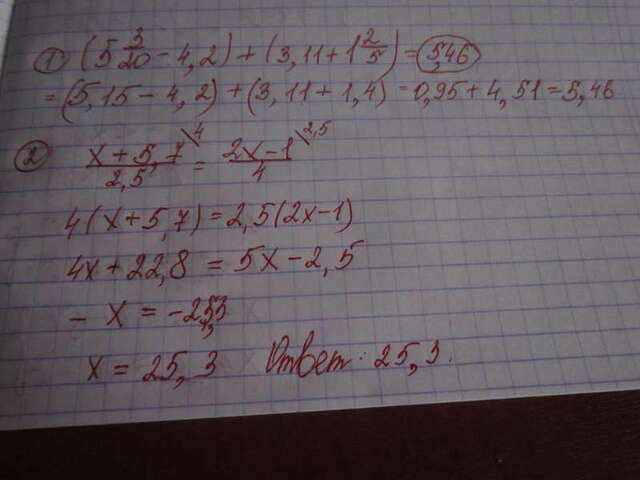 1 (5 3/20 - 4,2) + (3,11 + 1 2/5) = 5,46
= (5,15 - 4,2) + (3,11 + 1,4) = 0,95 + 4,51 = 5,46
2 x + 5,7 \4 / 2,5 = 2x - 1 \2,5 / 4
4(x + 5,7) = 2,5(2x - 1)
4x + 22,8 = 5x - 2,5
- x = -25,3
x = 25,3 Ответ: 25,3.